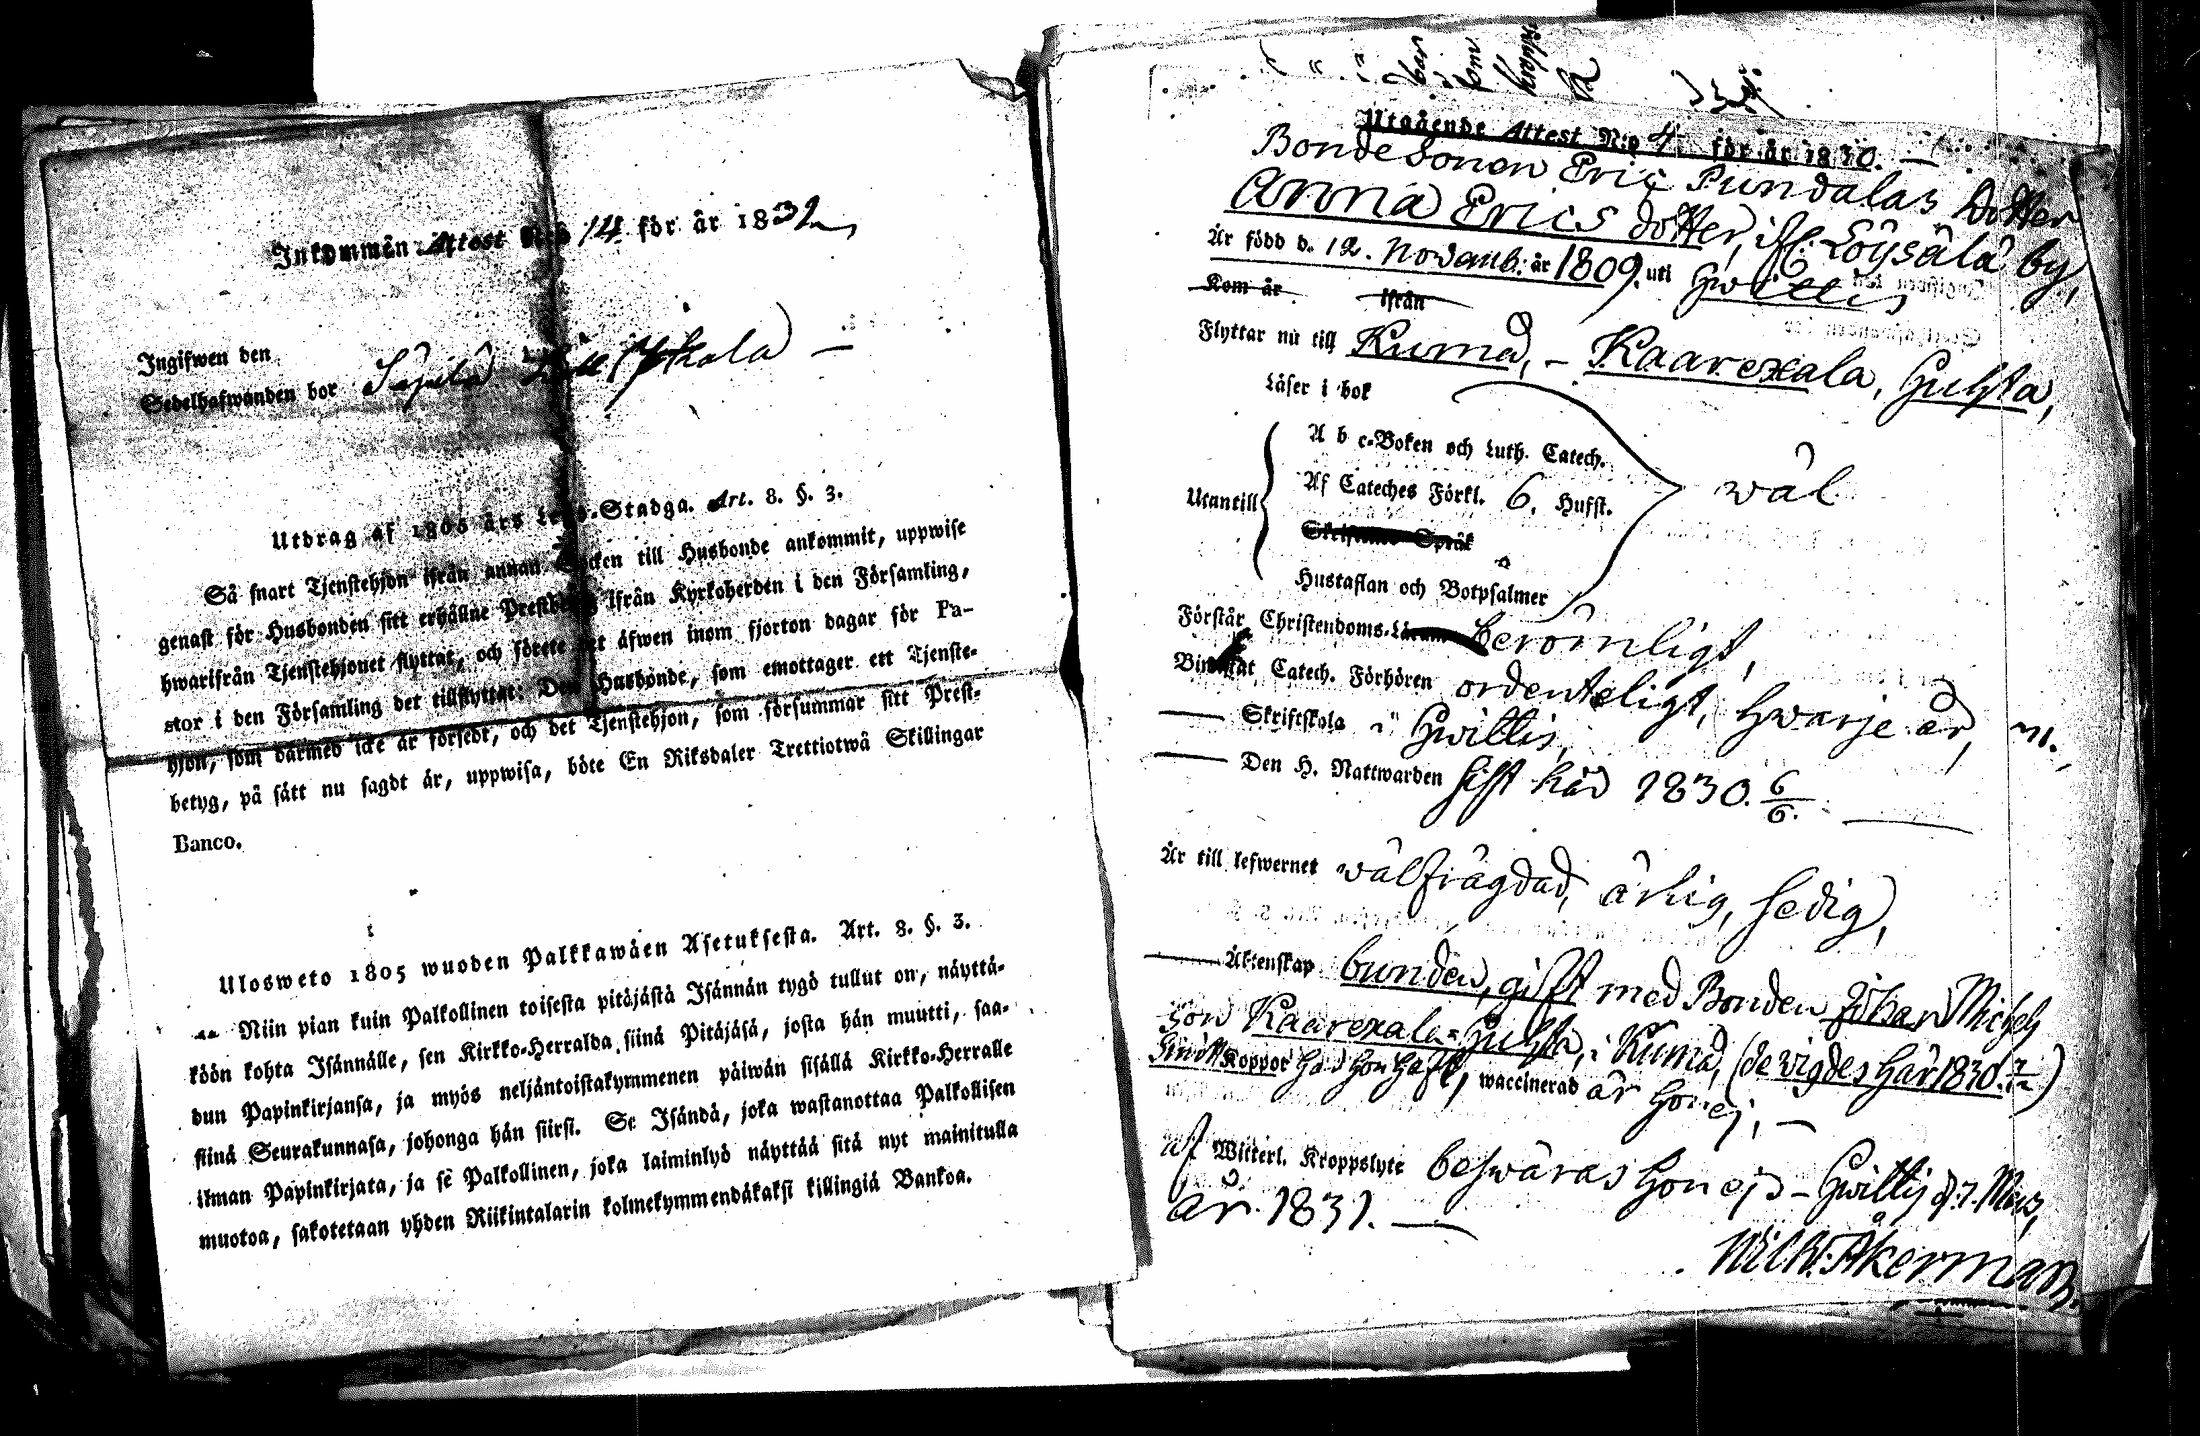 Inkommen Attest N:o 14 för år 1832
Ingifwen den
Sedelhafwanden bor
Utdrag af 1805 års Lego-Stadga. Art. 8. §. 3.
Så snart Tjenstehjon ifrån annan Socken till Husbonde ankommit, uppwise
genast för Husbonden sitt erhållne Prestbetyg ifrån Kyrkoherden i den Församling,
hwarifrån Tjenstehjonet flyttat, och förete det äfwen inom fjorton dagar för Pa-
stor i den Församling det tillflyttat: Den Husbonde, som emottager ett Tjenste-
hjon, som därmed icke är försedt, och det Tjenstehjon, som försummar sitt Prest-
betyg, på sätt nu sagdt är, uppwisa, böte En Riksdaler Trettiotwå Skillingar
Banco.
Ulosweto 1805 wuoden Palkkawäen Asetuksesta. Art. 8. §. 3.
Niin pian kuin Palkollinen toisesta pitäjästä Isännän tygö tullut on, näyttä-
köön kohta Isännälle, sen Kirkko-Herralda siinä Pitäjäsä, josta hän muutti, saa-
dun Papinkirjansa, ja myös neljäntoistakymmenen päiwän sisällä Kirkko-Herralle
siinä Seurakunnasa, johonga hän siirsi. Se Isändä, joka wastanottaa Palkollisen
ilman Papinkirjata, ja se Palkollinen, joka laiminlyö näyttää sitä nyt mainitulla
muotoa, sakotetaan yhden Riikintalarin kolmekymmendäkaksi killingiä Bankoa.
Utgående Attest N:o 4 för år 1830.
Bondesonen Eric Pundalas Dotter
Anna Erics dotter, ifr. Löysälä by,
Är född d. 12. Novemb. år 1809. uti Hwittis
Kom år ifrån
Flyttar nu till Kumå, - Kaarexala, Huhta,
Läser i bok
A b c-Boken och Luth. Catech.
Utantill Af Cateches Förkl. 6. Hufst. wäl
Skriftenes Språk
Hustaflan och Botpsalmer
Förstår Christendoms-Läran berömligt,
Biwistat Catech. Förhören ordenteligt, hwarje år,
Skriftskola i Hwittis,
Den H. Nattwarden sist här 1830. 6/6.
Är till lefwernet wälfrägdad, ärlig, sedig,
Äktenskap bunden, gift med Bonden Johan Michels
son Kaarexala-Huhta, i Kumå, (de vigdes här 1830.
Koppor had hon haft, waccinerad är hon ej,
af Witterl. Kroppslyte beswäras hon ej - Hwittis d. 7. Mars,
år 1831.
Wilh. Åkerman.